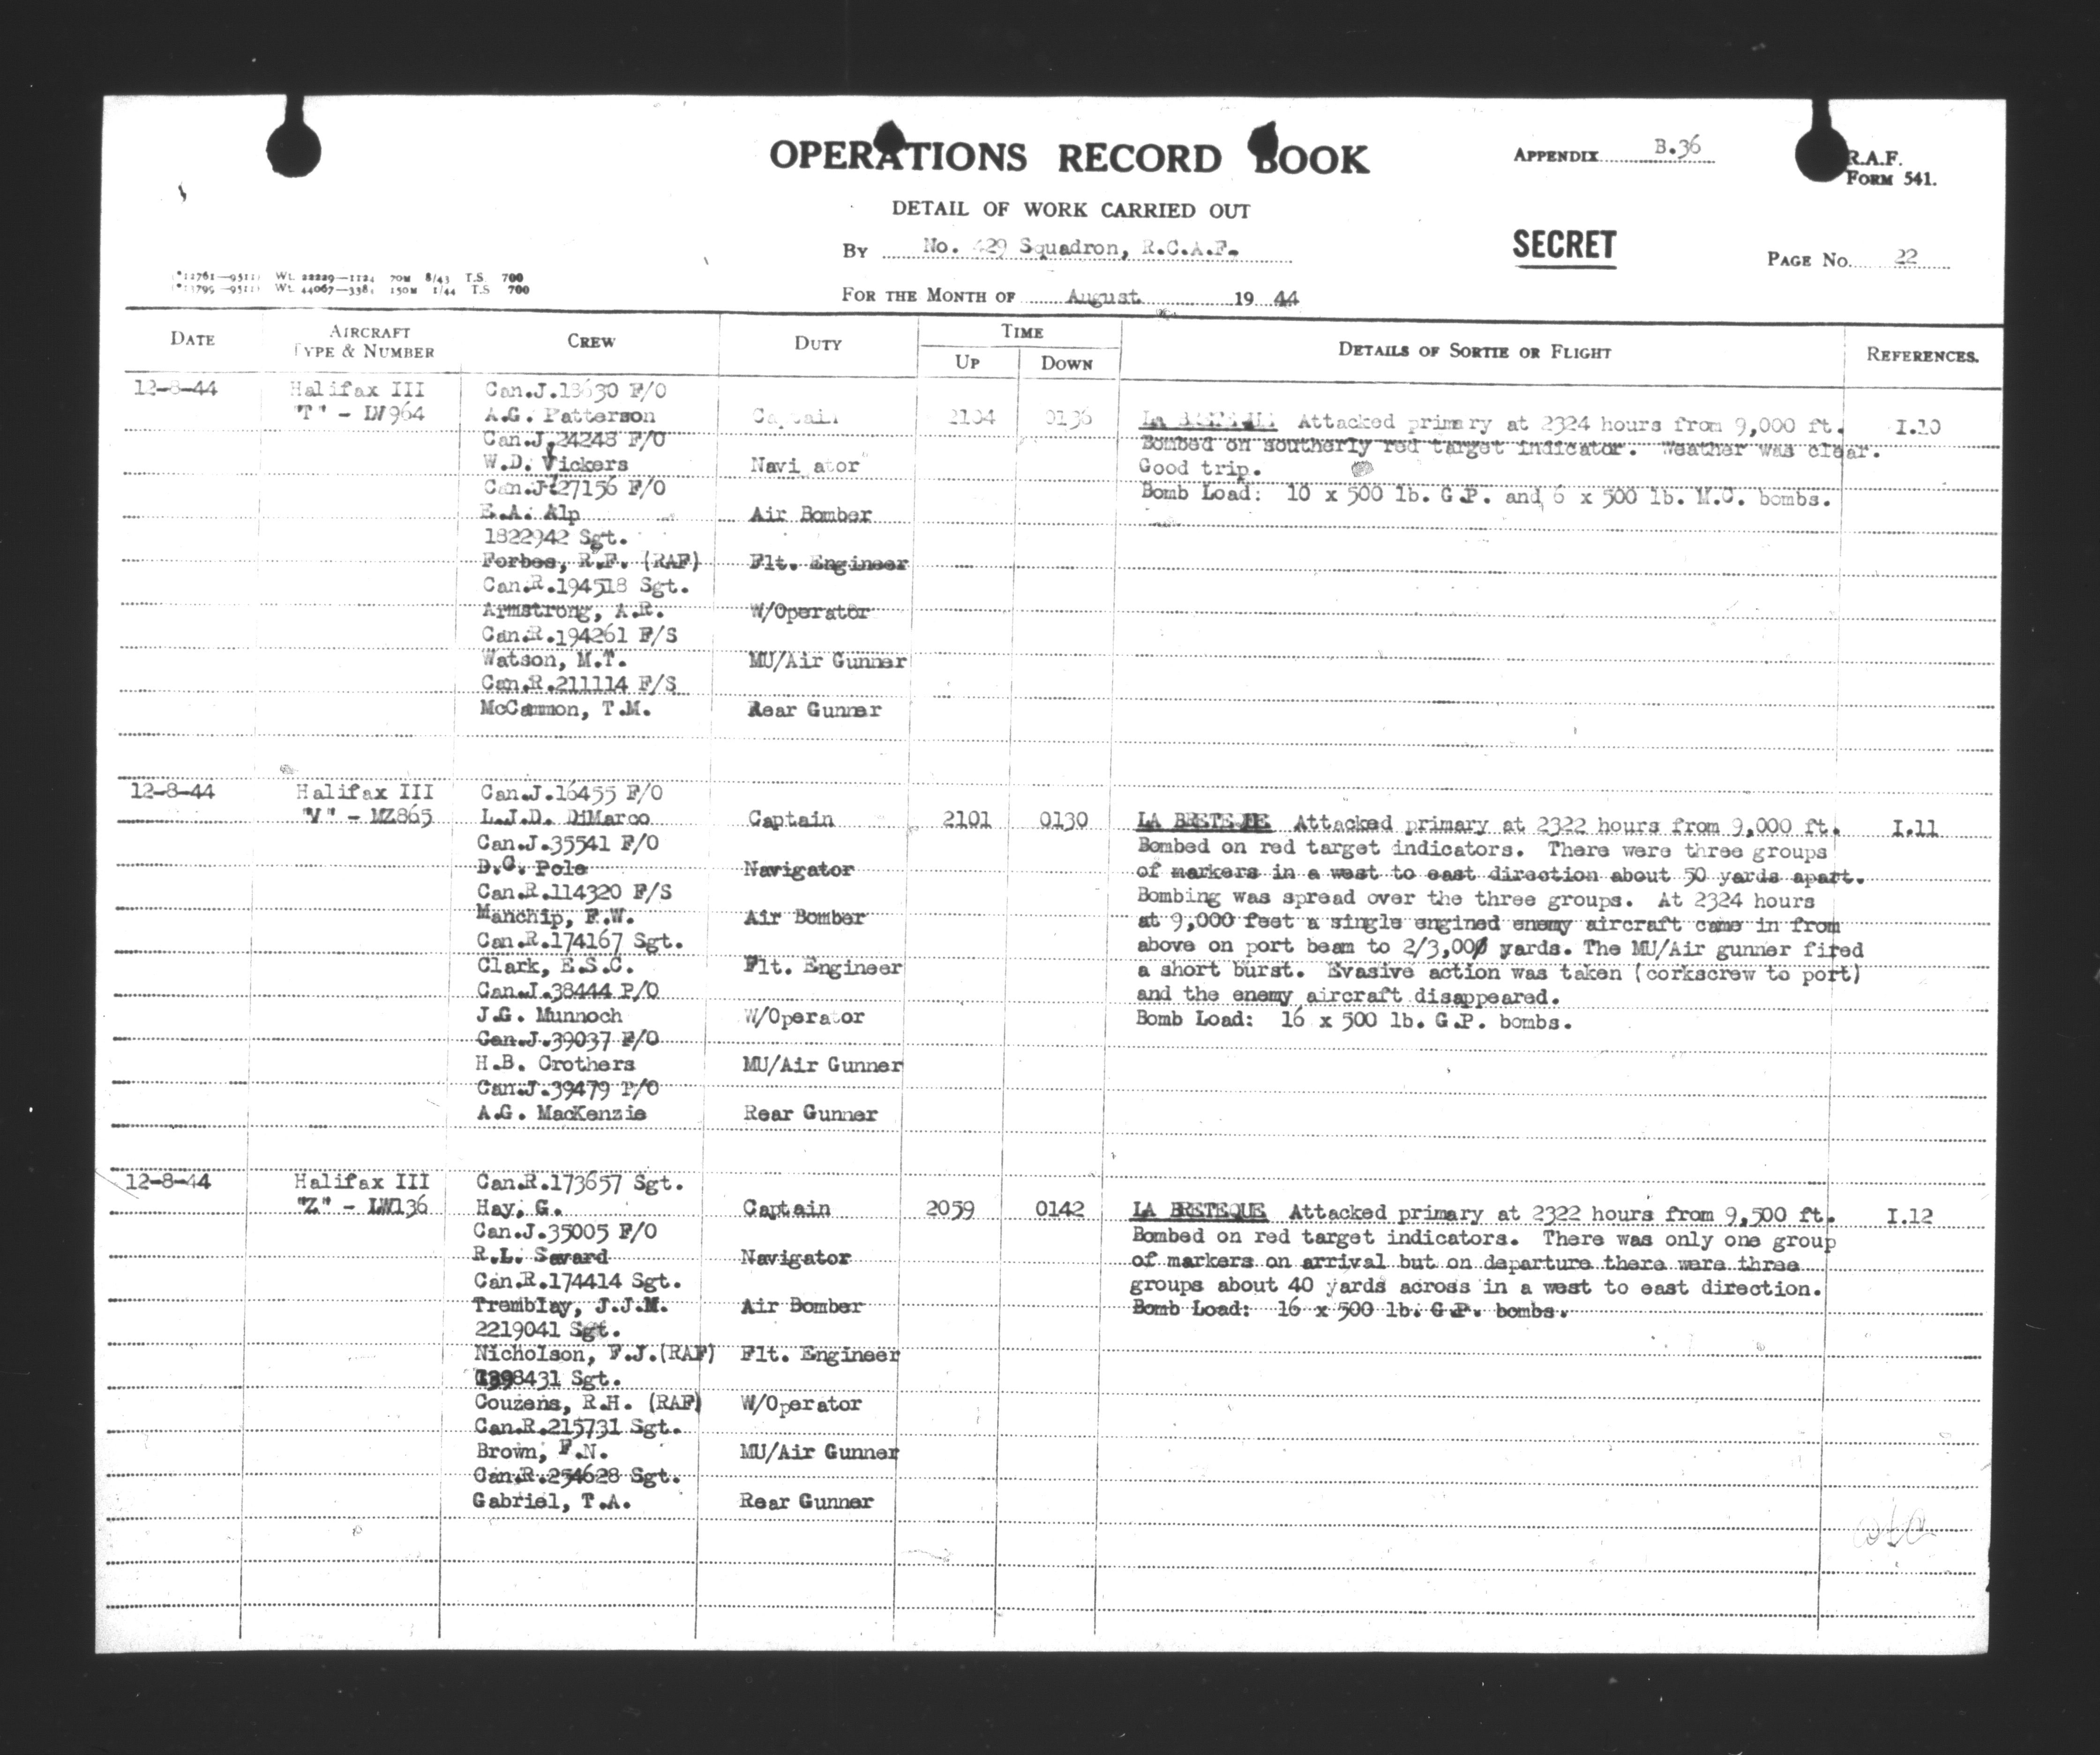 OPERATIONS RECORD BOOK
APPENDIX B.36
R.A.F.
FORM 541.
DETAIL OF WORK CARRIED OUT
By No. 429 Squadron, R.C.A.F.
SECRET
PAGE No. 22
FOR THE MONTH OF August 19 44
DATE
AIRCRAFT TYPE & NUMBER
CREW
DUTY
TIME
UP
DOWN
DETAILS OF SORTIE OR FLIGHT
REFERENCES.
12-8-44 Halifax III Can.J.13630 F/O
"T" - LV964 A.G. Patterson Captain 2104 0136 Attacked primary at 2324 hours from 9,000 ft. I.10
Can.J.24248 F/O Bombed on southerly red target indicator. Weather was clear.
W.D. Vickers Navigator Good trip.
Can.J.27156 F/O Bomb Load: 10 x 500 lb. G.P. and 6 x 500 lb. M.C. bombs.
E.A. Alp Air Bomber
1822942 Sgt.
Forbes, R.F. (RAF) Flt. Engineer
Can.R.194518 Sgt.
Armstrong, A.R. W/Operator
Can.R.194261 F/S
Watson, M.T. MU/Air Gunner
Can.R.211114 F/S
McCammon, T.M. Rear Gunner
12-8-44 Halifax III Can.J.16455 F/O
"V" - MZ865 L.J.D. DiMarco Captain 2101 0130 LA BRETEQUE Attacked primary at 2322 hours from 9,000 ft. I.11
Can.J.35541 F/O Bombed on red target indicators. There were three groups
D.G. Pole Navigator of markers in a west to east direction about 50 yards apart.
Can.R.114320 F/S Bombing was spread over the three groups. At 2324 hours
Manchip, F.W. Air Bomber at 9,000 feet a single engined enemy aircraft came in from
Can.R.174167 Sgt. above on port beam to 2/3,000 yards. The MU/Air gunner fired
Clark, E.S.C. Flt. Engineer a short burst. Evasive action was taken (corkscrew to port)
Can.J.38444 P/O and the enemy aircraft disappeared.
J.G. Munnoch W/Operator Bomb Load: 16 x 500 lb. G.P. bombs.
Can.J.39037 P/O
H.B. Crothers MU/Air Gunner
Can.J.39479 P/O
A.G. MacKenzie Rear Gunner
12-8-44 Halifax III Can.R.173657 Sgt.
"Z" - LW136 Hay, G. Captain 2059 0142 LA BRETEQUE Attacked primary at 2322 hours from 9,500 ft. I.12
Can.J.35005 F/O Bombed on red target indicators. There was only one group
R.L. Savard Navigator of markers on arrival but on departure there were three
Can.R.174414 Sgt. groups about 40 yards across in a west to east direction.
Tremblay, J.J.M. Air Bomber Bomb Load: 16 x 500 lb. G.P. bombs.
2219041 Sgt.
Nicholson, F.J.(RAF) Flt. Engineer
1398431 Sgt.
Couzens, R.H. (RAF) W/Operator
Can.R.215731 Sgt.
Brown, F.N. MU/Air Gunner
Can.R.254628 Sgt.
Gabriel, T.A. Rear Gunner